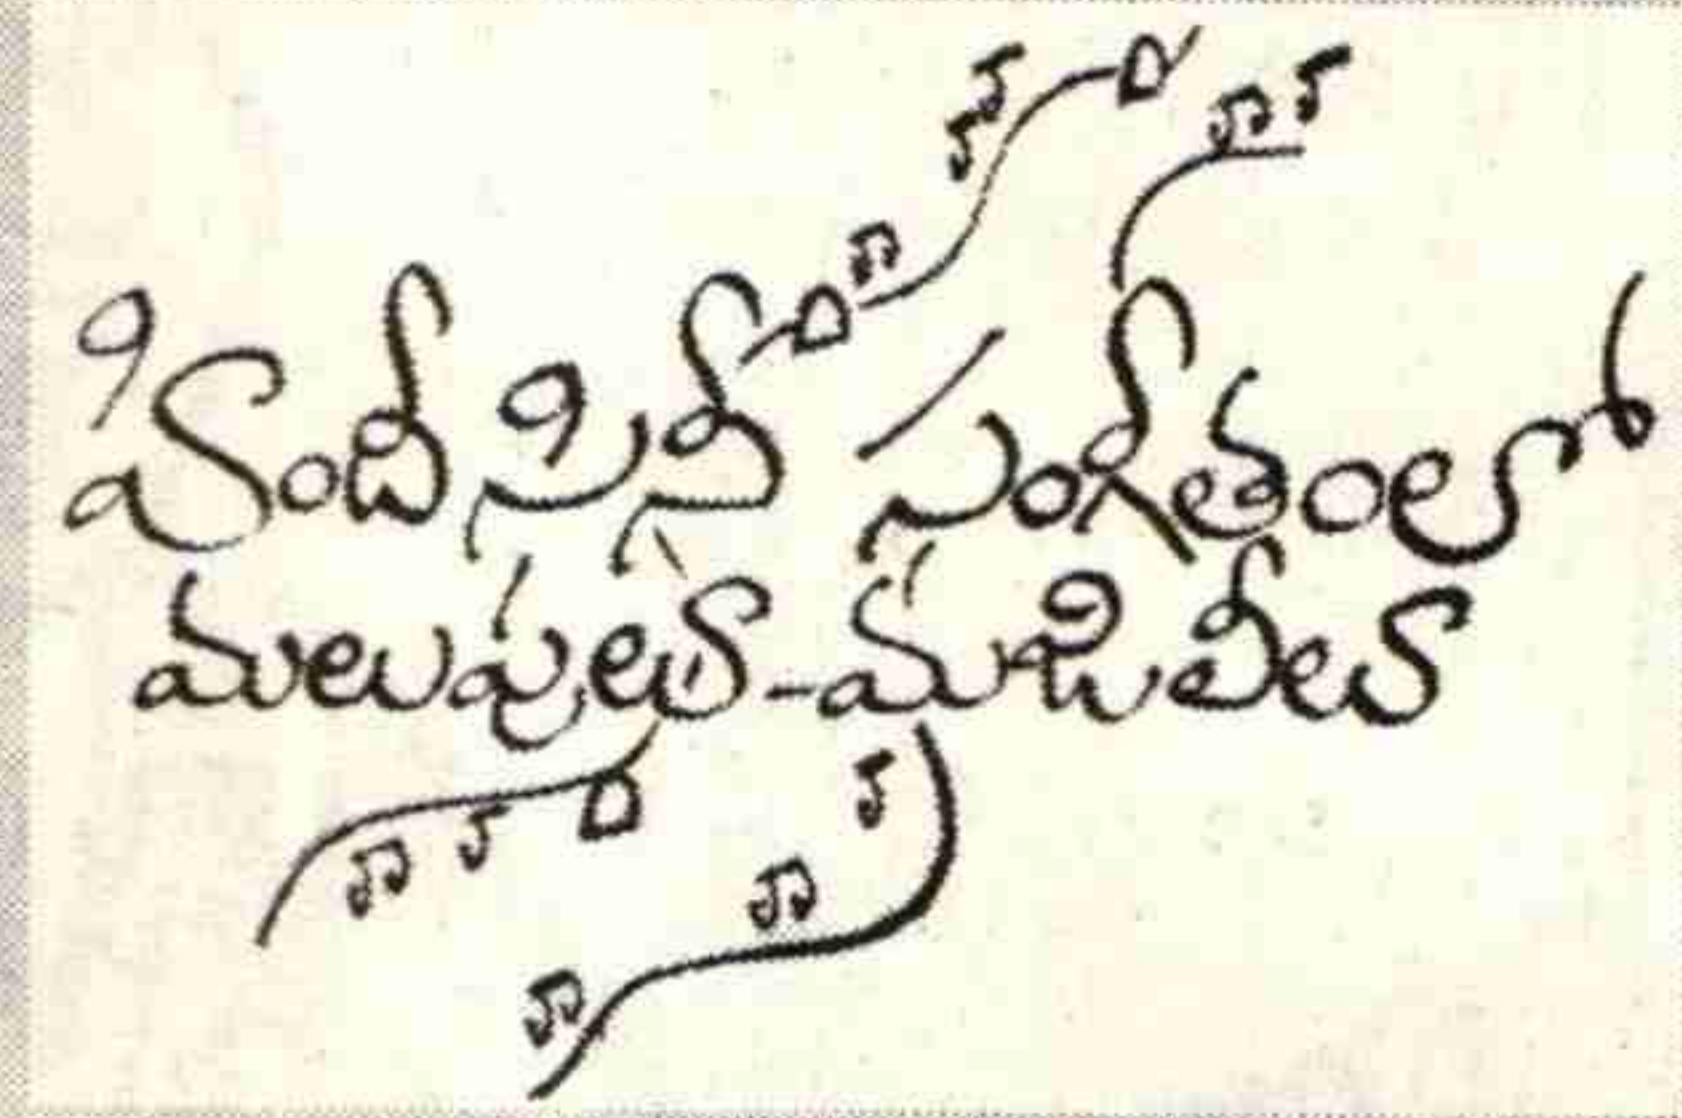 హిందీ సినీ సంగీతంలో
మలుపులూ-మజిలీలూ